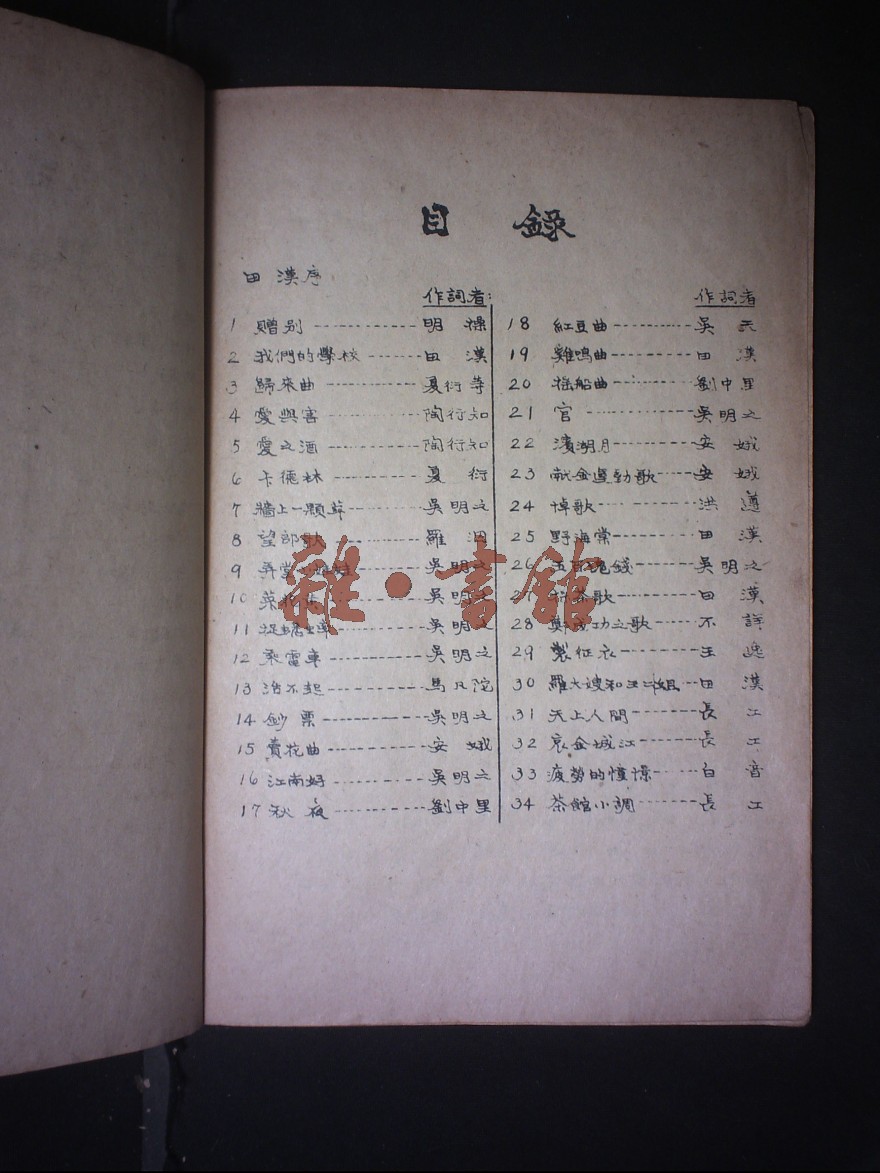 目 錄
田漢序
作詞者:
1 贈別 明
2 我們的學校 田漢
3 歸來曲 夏衍等
4 愛與害 陶行知
5 愛之酒 陶行知
6 卡德林 夏衍
7 牆上一顆 吳明之
8 望郎歌 羅
9 弄堂 吳明之
10 菜 吳明之
11 捉 吳明之
12 乘電車 吳明之
13 活不起 馬凡陀
14 鈔票 吳明之
15 賣花曲 安娥
16 江南好 吳明之
17 秋夜 劉中里
作詞者
18 紅豆曲 吳天
19 雞鳴曲 田漢
20 搖船曲 劉中里
21 官 吳明之
22 濱湖月 安娥
23 献金運動歌 安娥
24 悼歌 洪遵
25 野海棠 田漢
26 五百塊錢 吳明之
27 茶歌 田漢
28 鄭成功之歌 不詳
29 製征衣 王逸
30 羅大嫂和王二姐 田漢
31 天上人間 長工
32 哀金城江 長工
33 疲勞的憧憬 白音
34 茶館小調 長工
雜·書館